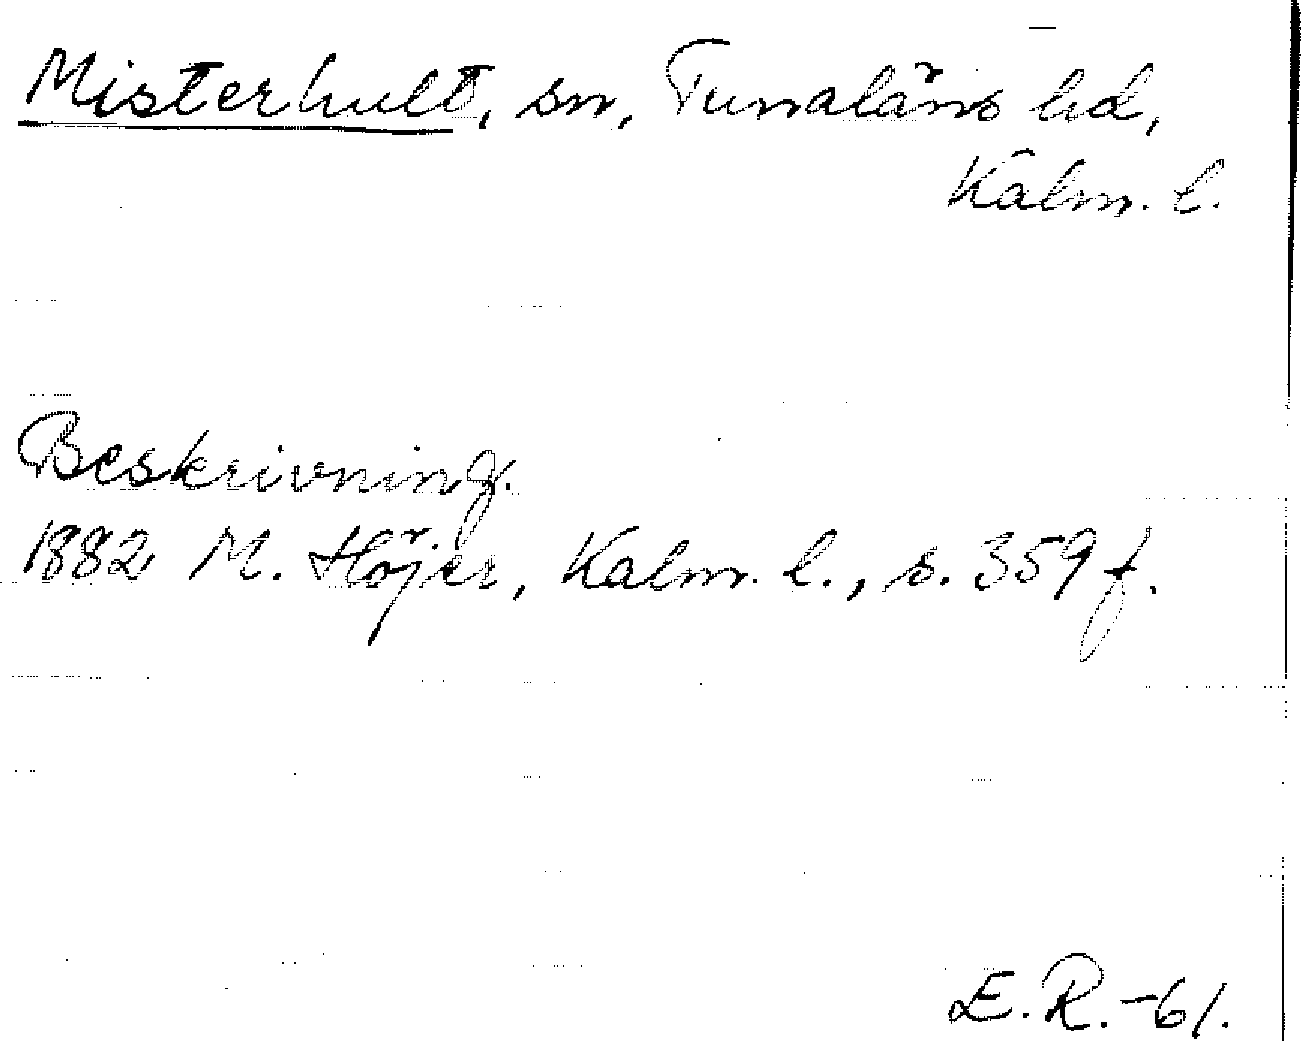 Misterhult, sn, Tunaläns hd,
Kalm. l.
Beskrivning.
1882 M. Höjer, Kalm. l., s. 359 f.
E.R.-61.